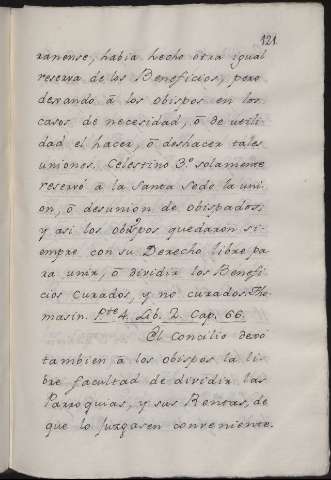 121.
ranense, había hecho otra igual
reserva de los Beneficios, pero
dexando â los obispos en los
casos de necesidad, ô de utili
dad el hacer, ô deshacer tales
uniones. Celestino 3.º solamente
reservó â la Santa Sede la uni
on, ô desunion de obispados;
y asi los obispos quedaron si
empre con su Derecho libre pa
ra unir, ô dividir los Benefi
cios curados, y no curados. Tho
masin. Pte 4. Lib. 2. Cap. 66.
El Concilio dexó
tambien â los obispos la li
bre facultad de dividir las
Parroquias, y sus Rentas, de
que lo juzgasen conveniente.